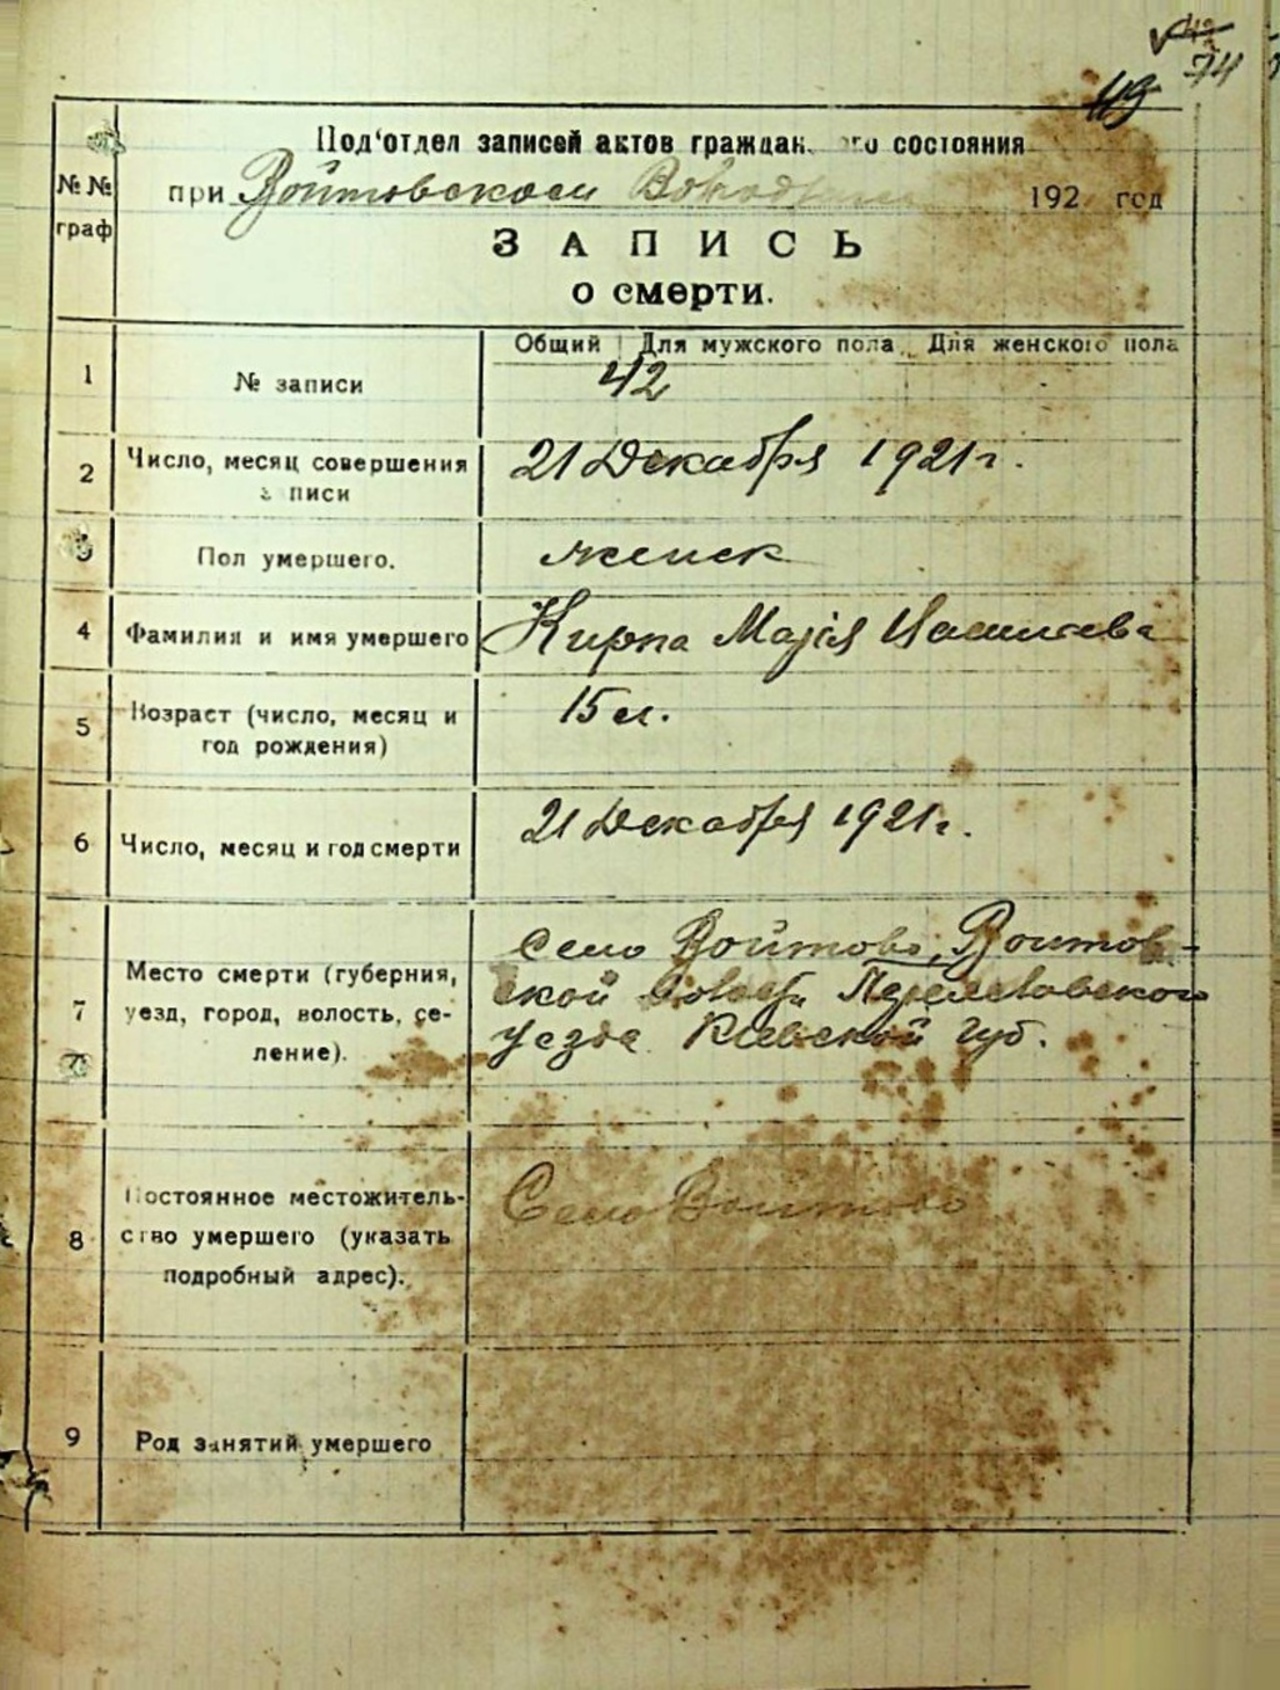 74
49
Под'отдел записей актов граждан го состояния
№№
граф
при Войтовском 192 год
ЗАПИСЬ
о смерти.
Общий Для мужского пола Для женского пола
1 № записи 42
2 Число, месяц совершения
писи
21 Декабря 1921 г.
3 Пол умершего. женск
4 Фамилия и имя умершего Кирпа Марія
5 Возраст (число, месяц и
год рождения)
15
6 Число, месяц и год смерти 21 Декабря 1921 г.
7 Место смерти (губерния,
уезд, город, волость, се-
ление).
Село Войтово, Войтов-
ской Переяславского
уезда Киевской губ.
8 Постоянное местожитель-
ство умершего (указать
подробный адрес).
Село Войтово
9 Род занятий умершего